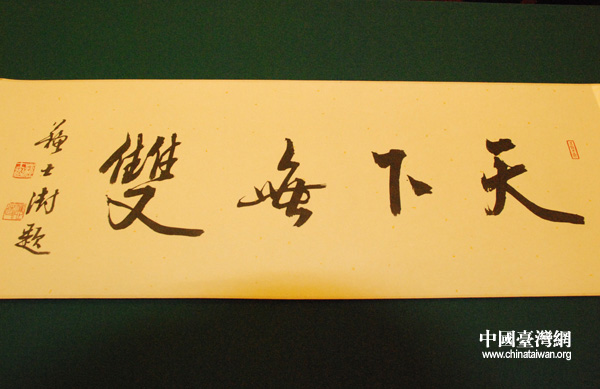 天下無雙
蘇士澍題
中國臺灣網
www.chinataiwan.org